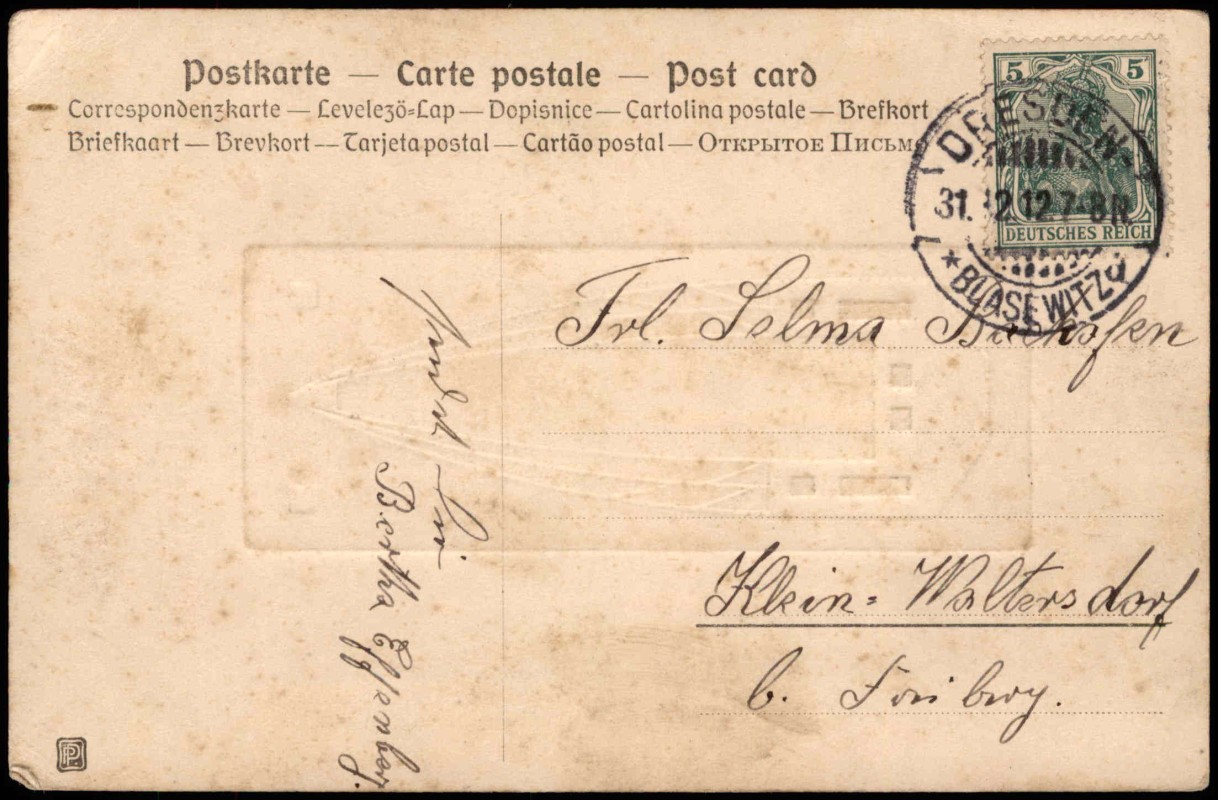 Postkarte — Carte postale — Post card
Correspondenzkarte — Levelezö-Lap — Dopisnice — Cartolina postale — Brefkort
Briefkaart — Brevkort — Tarjeta postal — Cartão postal — Открытое Письмо
5 5
DEUTSCHES REICH
DRESDEN
31.12.12.7-8N.
* BLASEWITZ
Frl. Selma Backofen
Klein-Waltersdorf
b. Freiberg.
sendet Dir
Bertha
PP